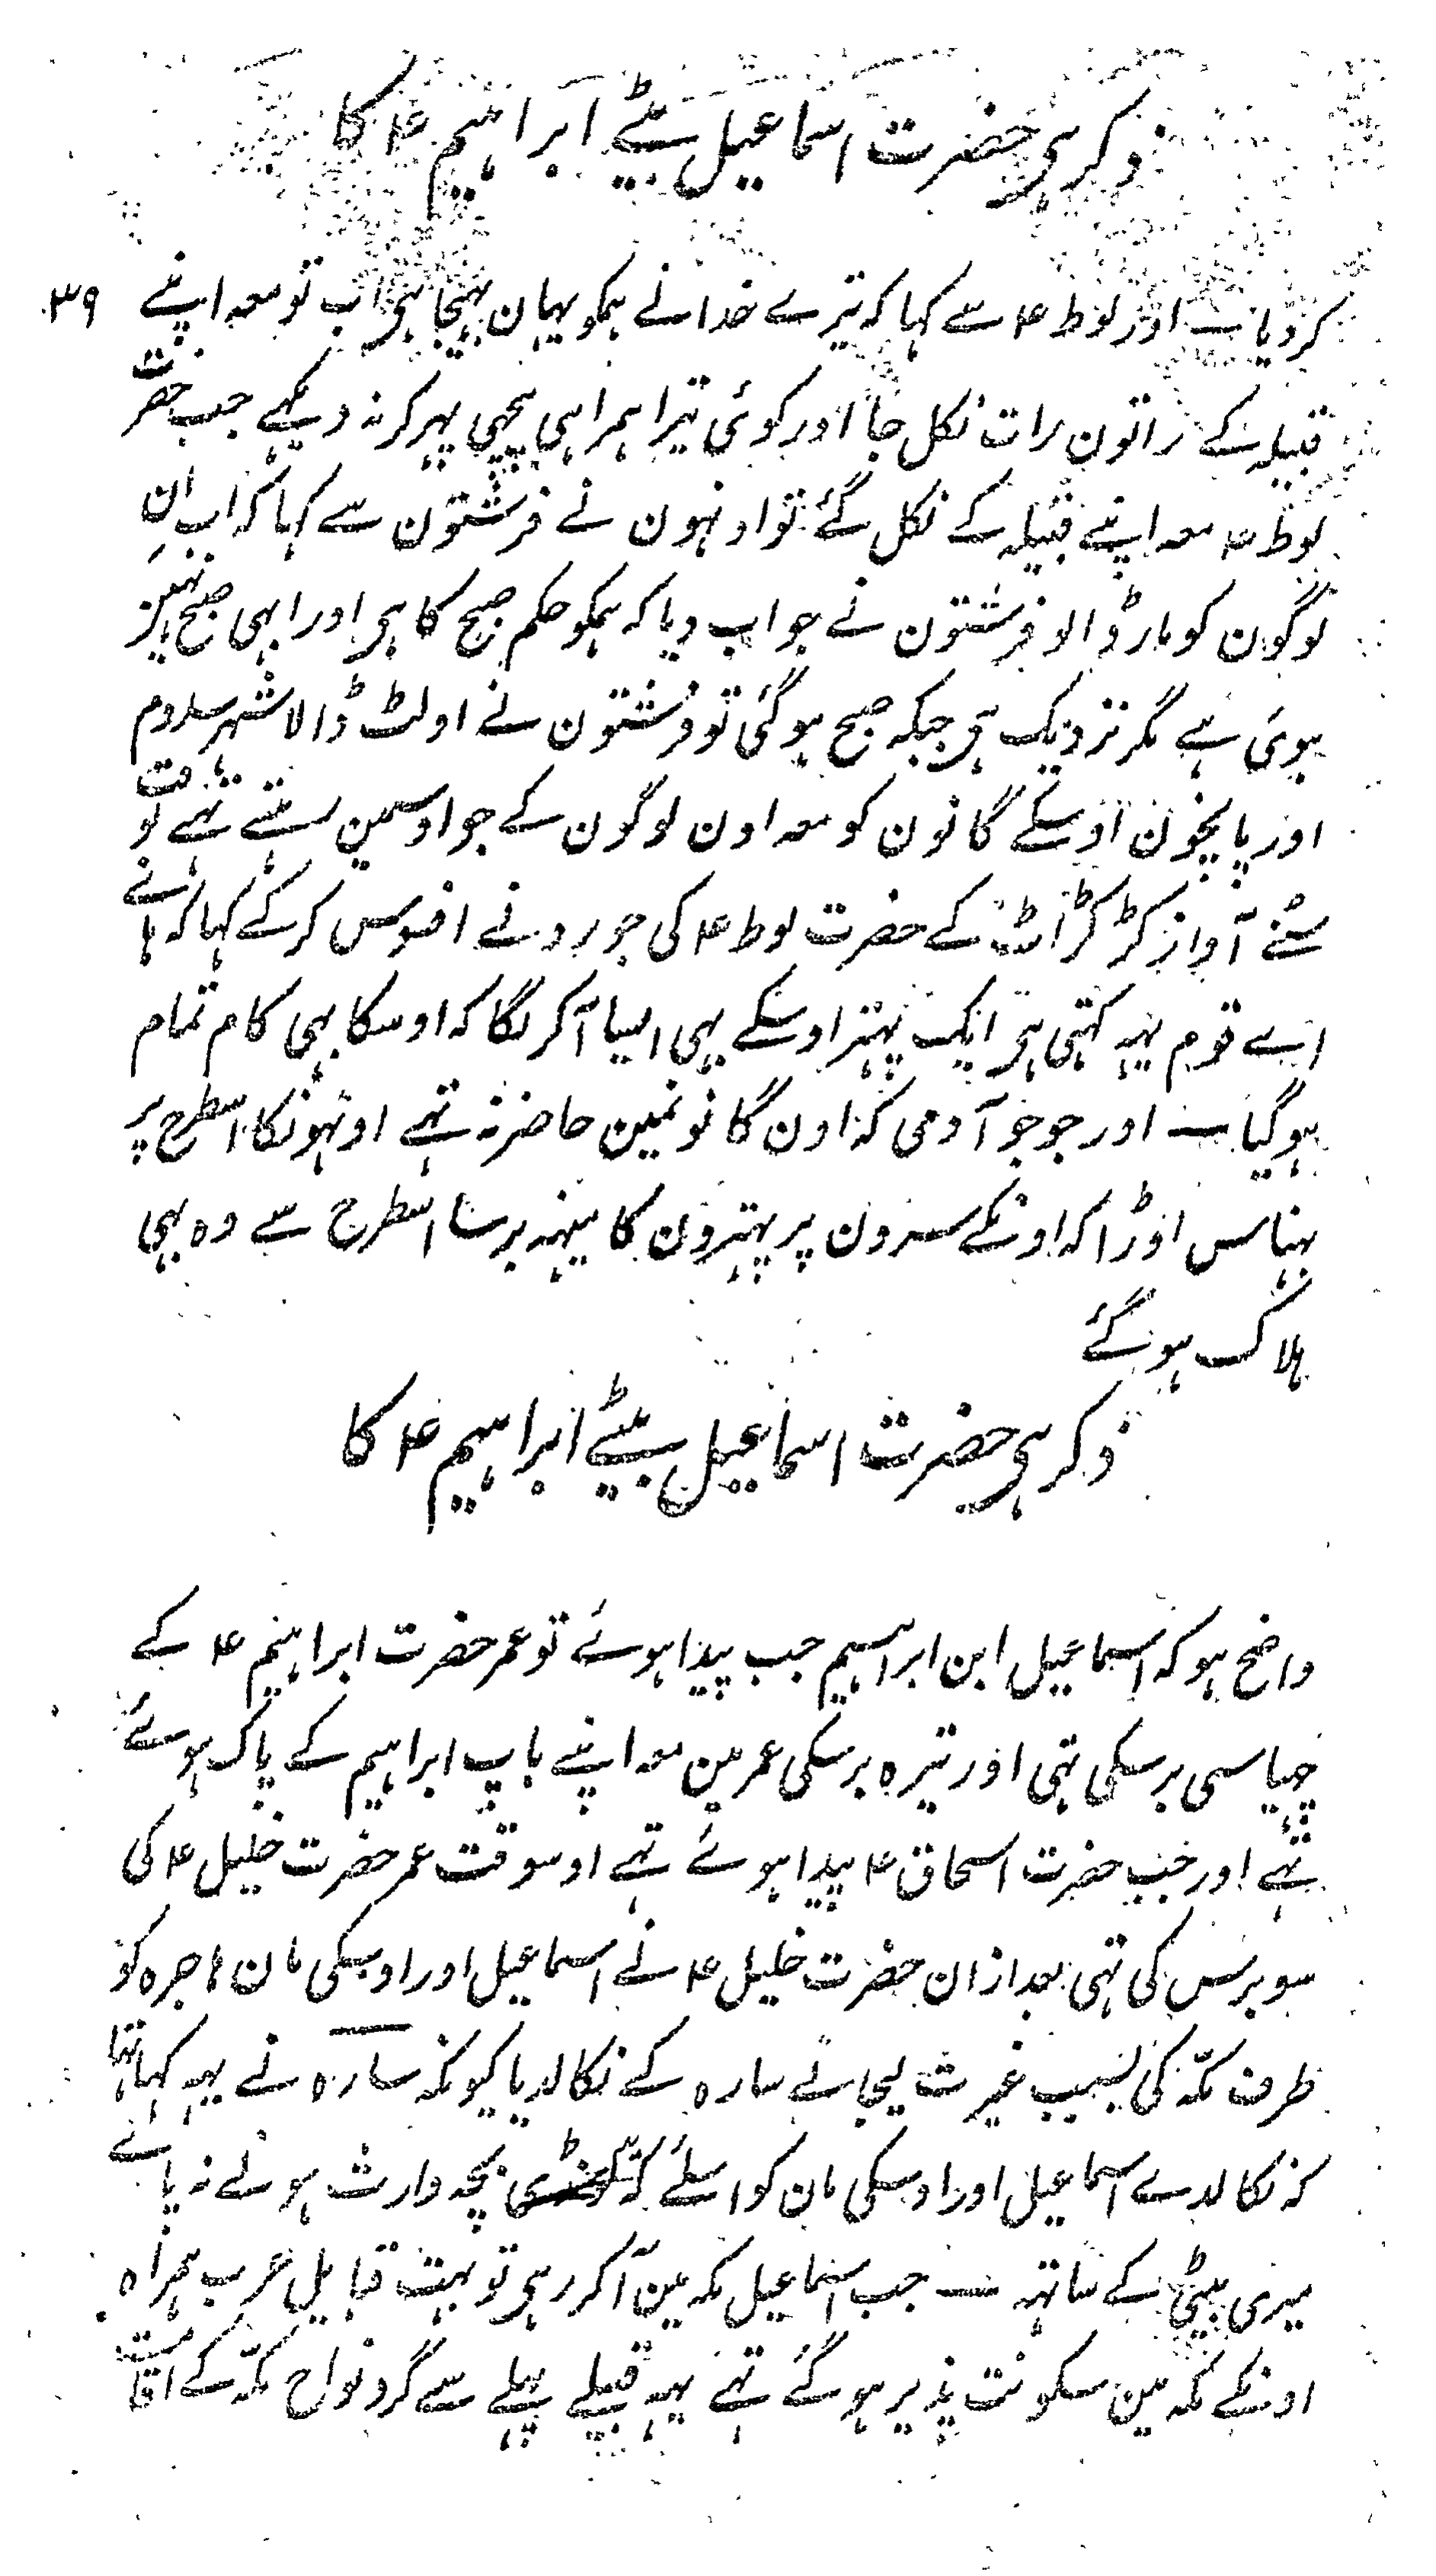 ذکر ہی حضرت اسماعیل بیٹے ابراہیم ۴ کا
۳۹
کردیا ــ اور لوط ۴ سے کہا کہ تیرے خدا نے ہمکو یہان بہیجا ہی اب تو معہ اپنے
قبیلہ کے راتون رات نکل جا اور کوئی تیرا ہمراہی پیچھی پہر کر نہ دیکہے جب حضرت
لوط ۴ معہ اپنے قبیلہ کے نکل گئے تو اونہون نے فرشتون سے کہا کہ اب ان
لوگون کو مار ڈالو فرشتون نے جواب دیا کہ ہمکو حکم صبح کا ہی اور ابہی صبح نہین
ہوئی ہے مگر نزدیک ہی جبکہ صبح ہوگئی تو فرشتون نے اولٹ ڈالا شہر سدوم
اور پانچون اوسکے گانون کو معہ اون لوگون کے جو اوسمین رہتے تہے تو وقت
سننے آواز کڑکڑاٹ کے حضرت لوط ۴ کی جورو نے افسوس کرکے کہا کہ ہائے
اے قوم یہہ کہتی ہی ایک پہتر اوسکے بہی ایسا آکر لگا کہ اوسکا بہی کام تمام
ہوگیا ــ اور جو جو آدمی کہ اون گانونمین حاضر نہ تہے اونہونکا اسطرح پر
بہناس اوڑا کہ اونکے سرون پر پہترون کا مینہہ برسا اسطرح سے وہ بہی
ہلاک ہوگئے
ذکر ہی حضرت اسماعیل بیٹے ابراہیم ۴ کا
واضح ہو کہ اسماعیل ابن ابراہیم جب پیدا ہوئے تو عمر حضرت ابراہیم ۴ کے
چہیاسی برسکی تہی اور تیرہ برسکی عمر مین معہ اپنے باپ ابراہیم کے پاک ہوئے
تہے اور جب حضرت اسحاق ۴ پیدا ہوئے تہے اوسوقت عمر حضرت خلیل ۴ کی
سو برس کی تہی بعد ازان حضرت خلیل ۴ نے اسماعیل اور اوسکی مان ہاجرہ کو
طرف مکّہ کی بسبب غیرت لیجانے سارہ کے نکالدیا کیونکہ سارہ نے یہہ کہا تہا
کہ نکالدے اسماعیل اور اوسکی مان کو اسلئے کہ بچہ وارث ہونے نہ پائے
میری بیٹی کے ساتہہ ــ جب اسماعیل مکہ مین آکر رہی تو بہت قبایل عرب ہمراہ
اونکے مکہ مین سکونت پذیر ہوگئے تہے یہہ قبیلے پہلے سے گرد نواح مکّہ کے اقامت